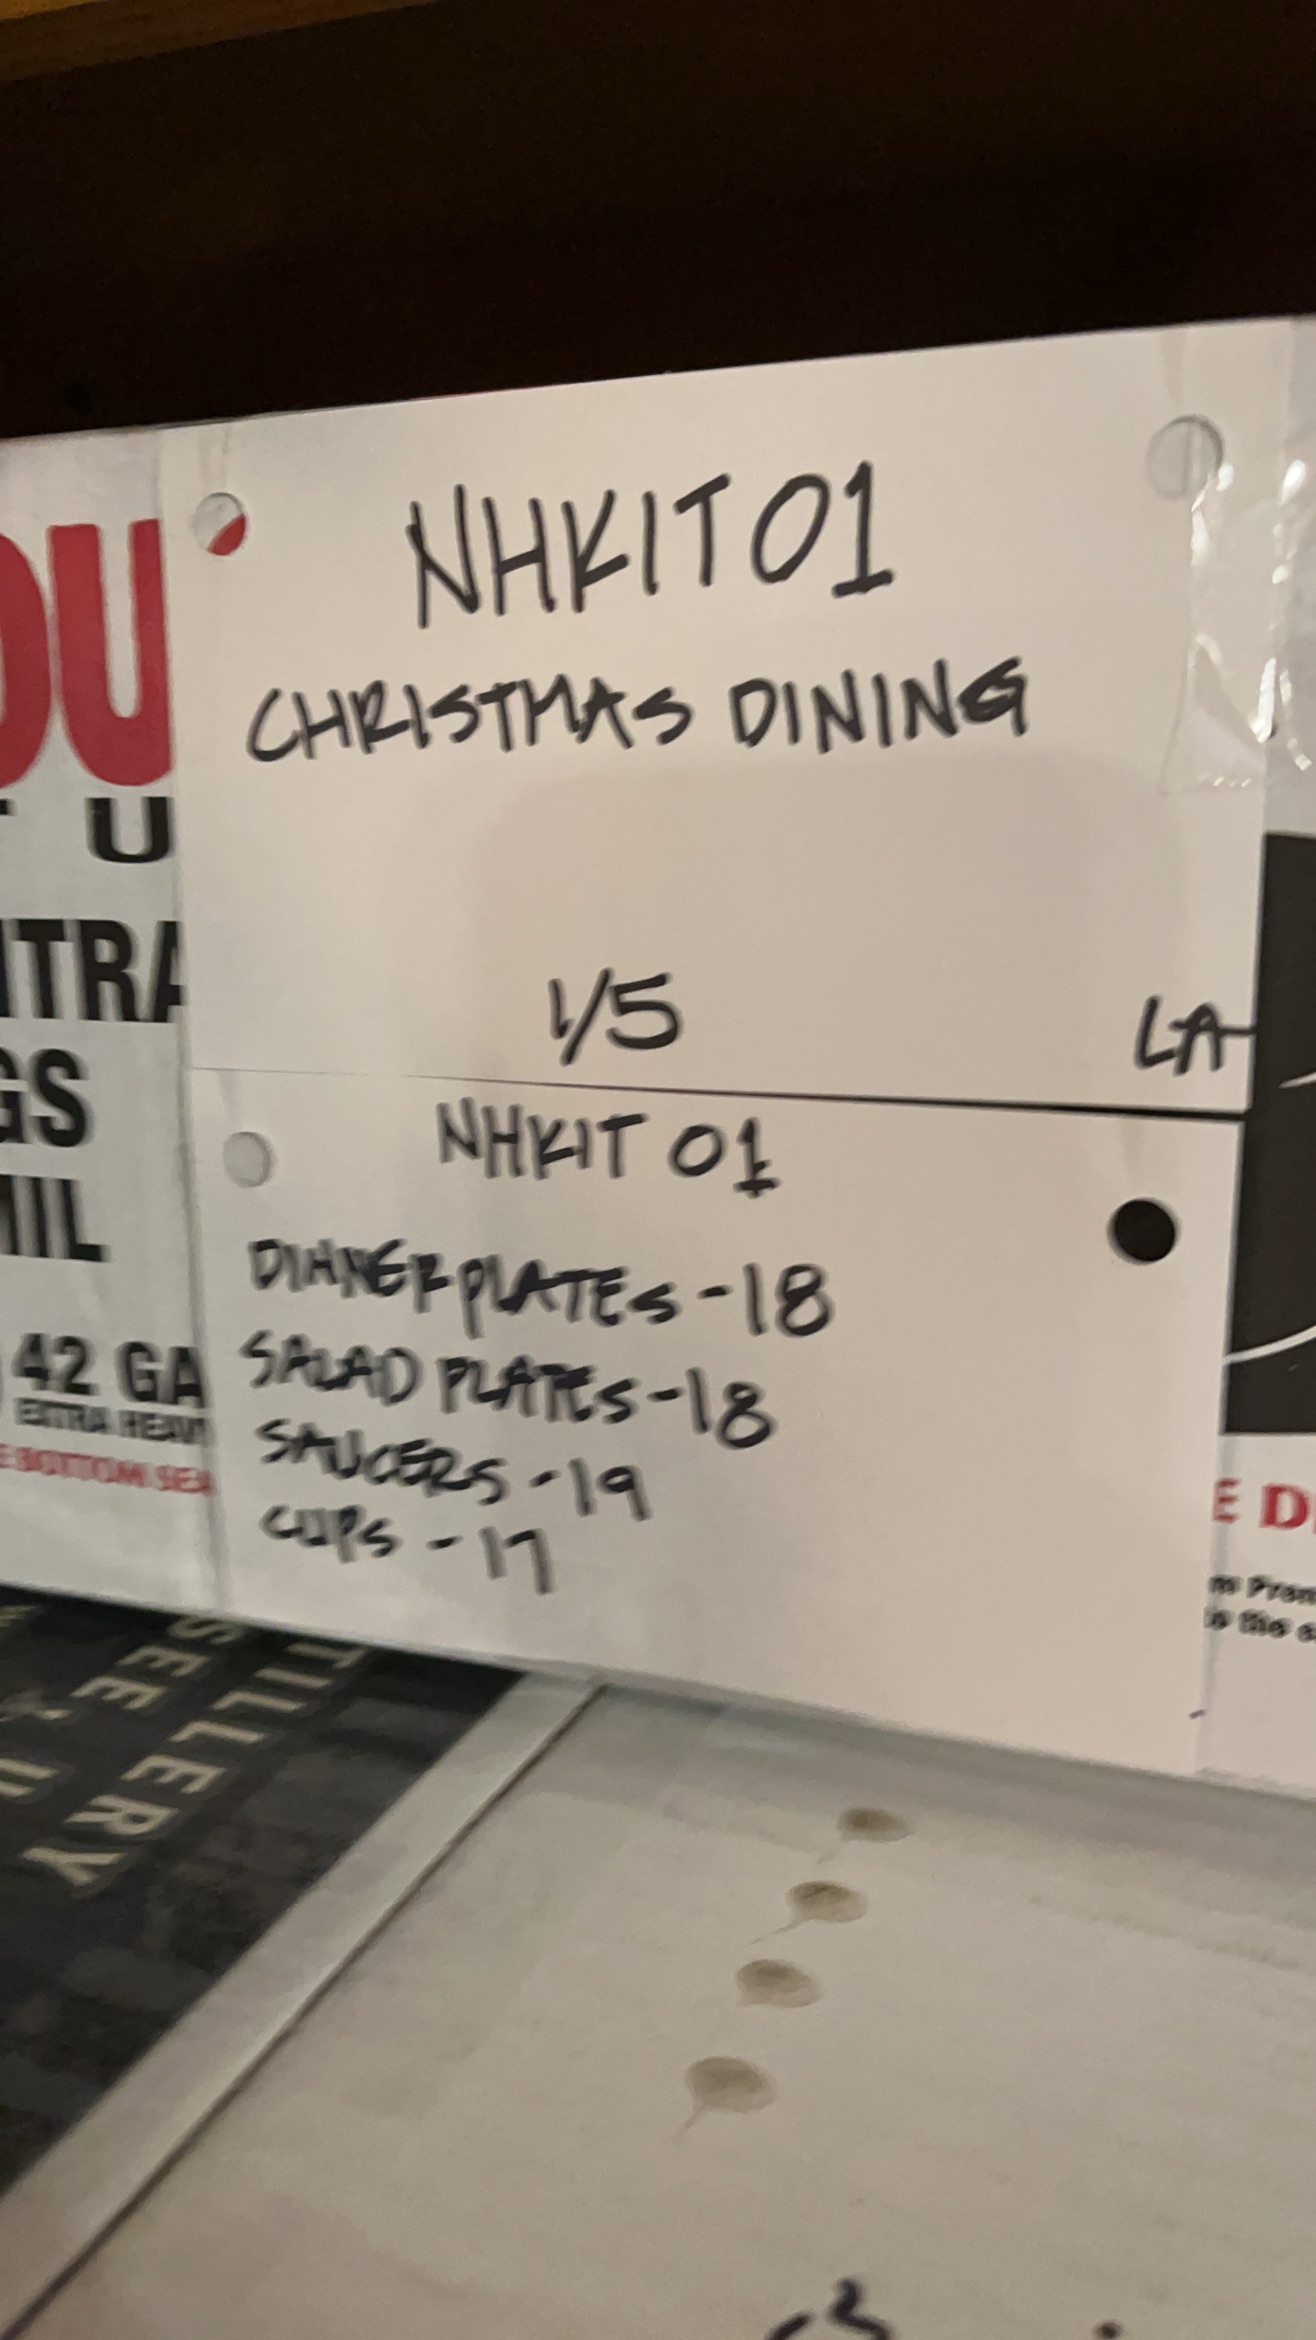 NHKIT01
CHRISTMAS DINING
1/5
LA
NHKIT 01
DINNER PLATES - 18
SALAD PLATES - 18
SAUCERS - 19
CUPS - 17
OU
T U
NTRA
GS
MIL
42 GA
EXTRA HEAV
E BOTTOM SEA
E D
m Prem
TILLERY
SEE